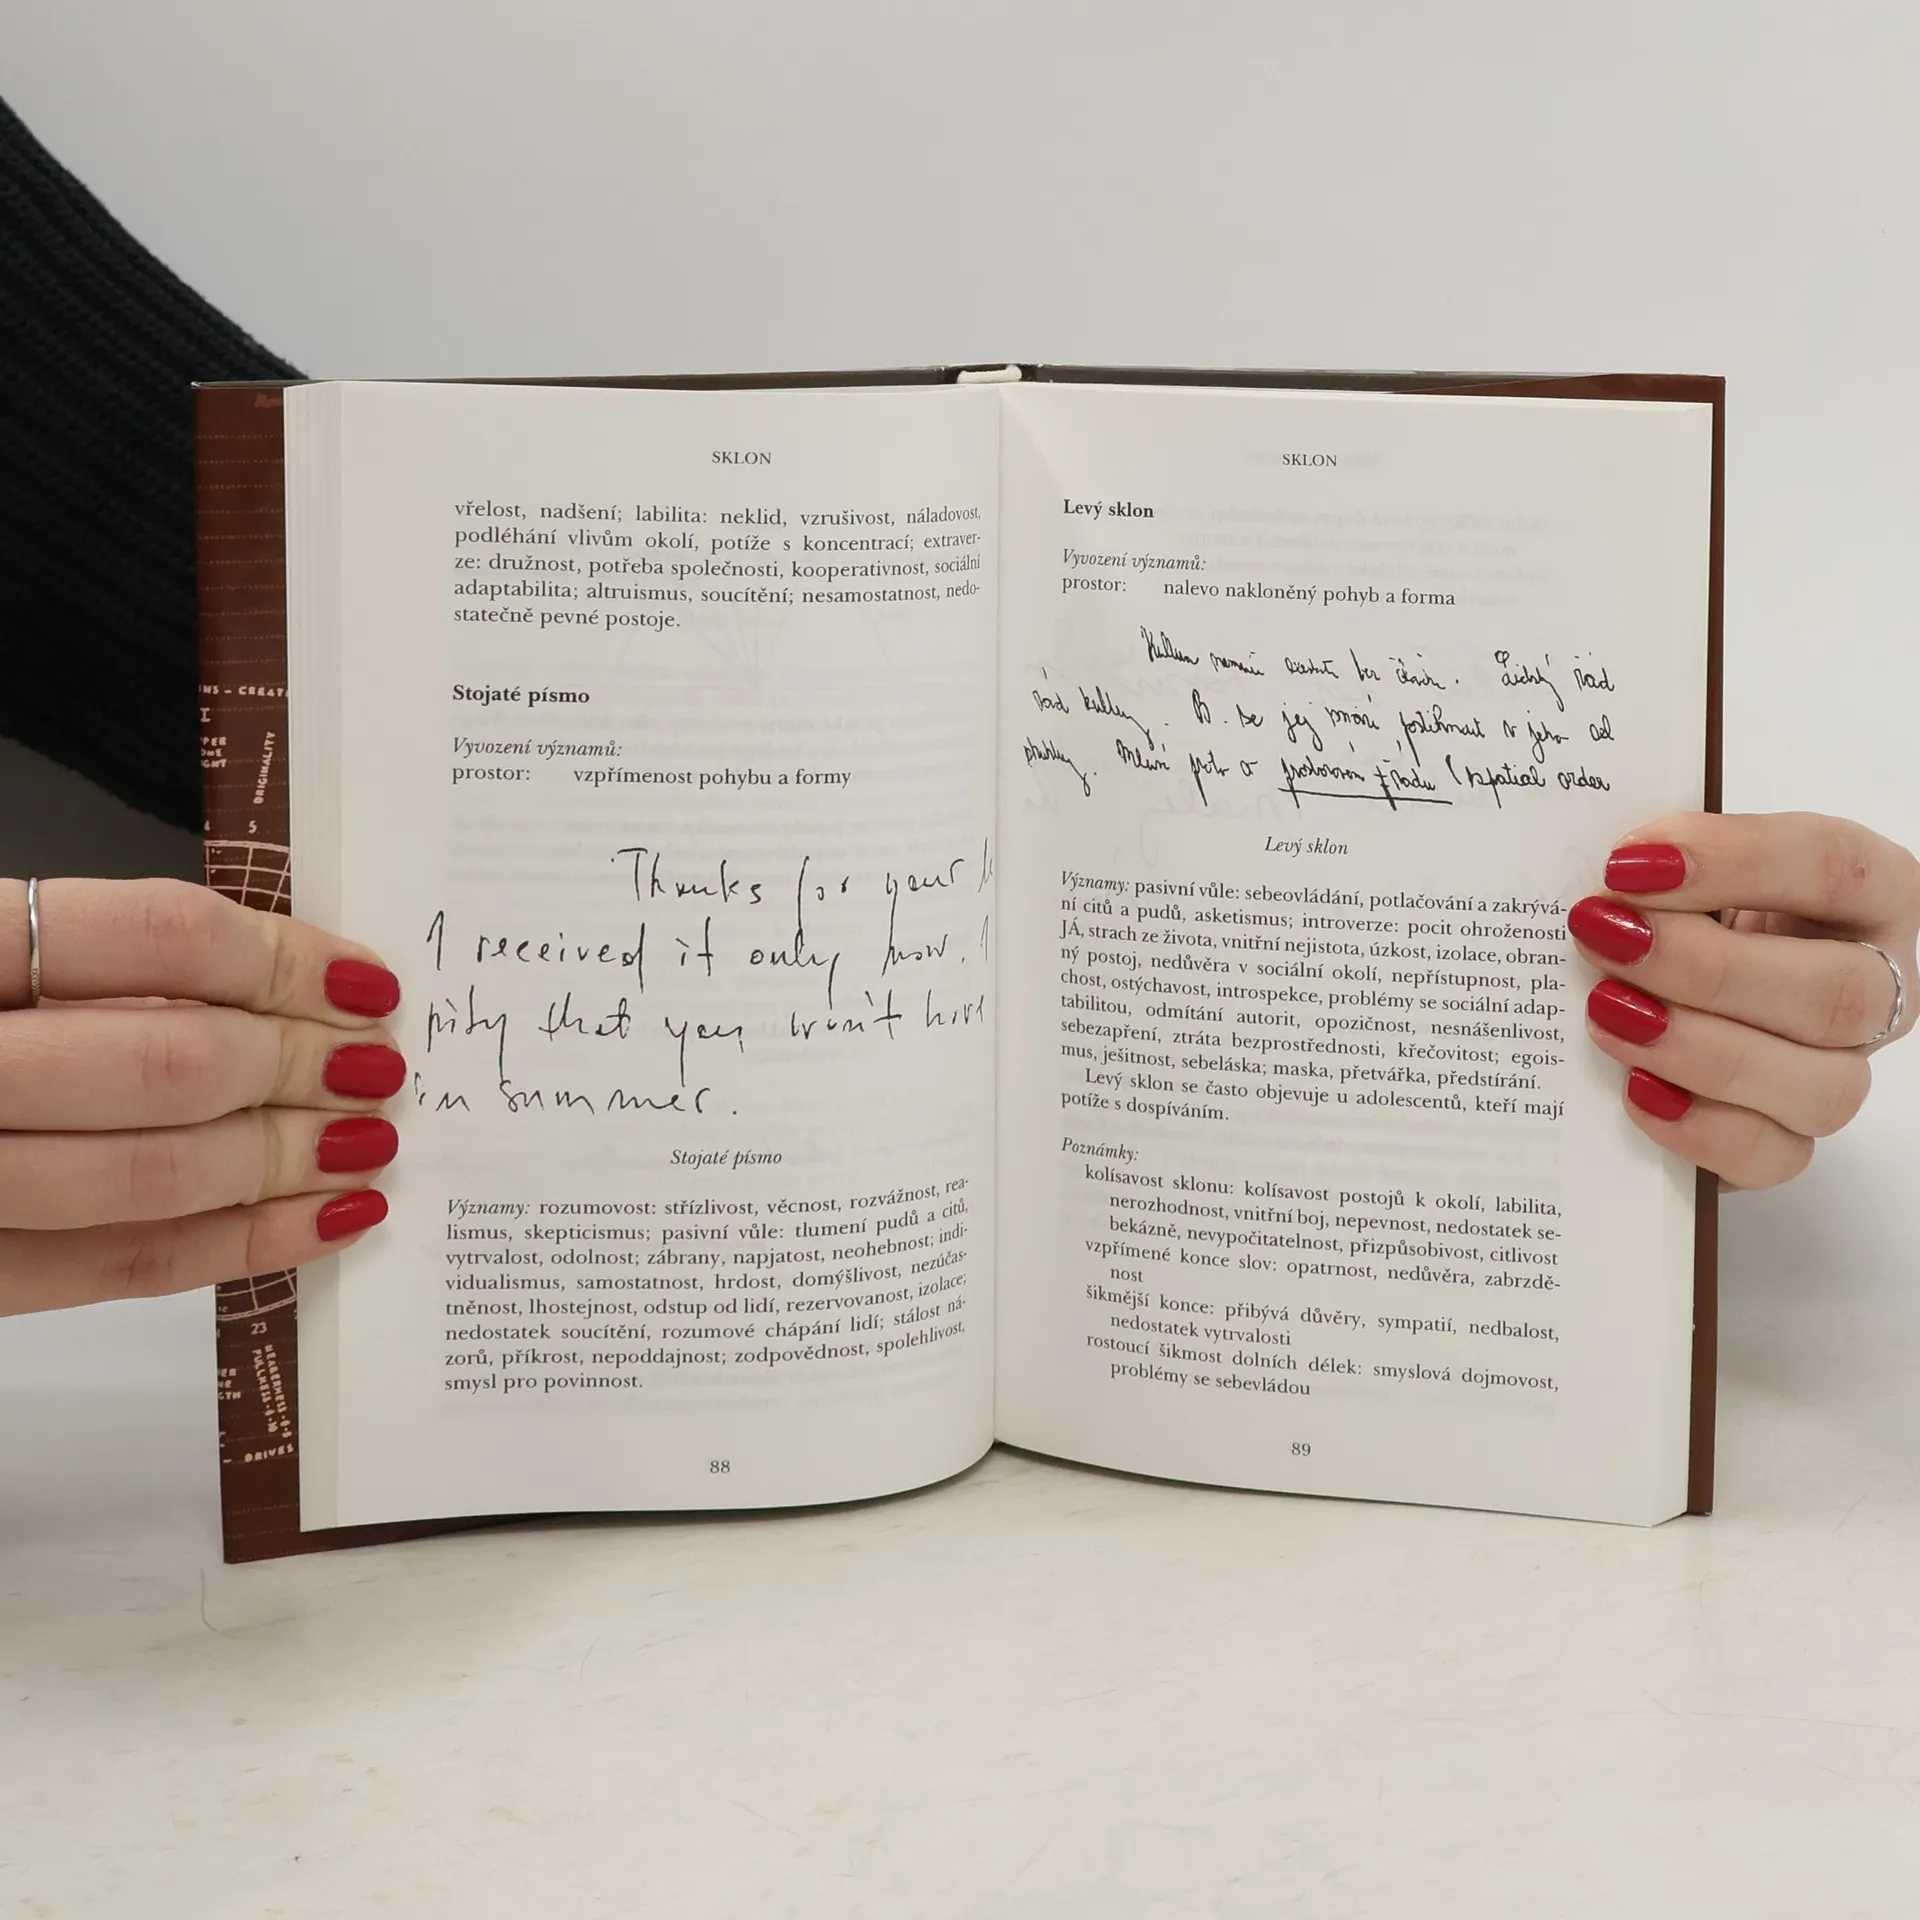 SKLON
vřelost, nadšení; labilita: neklid, vzrušivost, náladovost,
podléhání vlivům okolí, potíže s koncentrací; extraver-
ze: družnost, potřeba společnosti, kooperativnost, sociální
adaptabilita; altruismus, soucítění; nesamostatnost, nedo-
statečně pevné postoje.
Stojaté písmo
Vyvození významů:
prostor: vzpřímenost pohybu a formy
Thanks for your
I received it only now.
pity that you won't have
in summer.
Stojaté písmo
Významy: rozumovost: střízlivost, věcnost, rozvážnost, rea-
lismus, skepticismus; pasivní vůle: tlumení pudů a citů,
vytrvalost, odolnost; zábrany, napjatost, neohebnost; indi-
vidualismus, samostatnost, hrdost, domýšlivost, nezúčas-
tněnost, lhostejnost, odstup od lidí, rezervovanost, izolace;
nedostatek soucítění, rozumové chápání lidí; stálost ná-
zorů, příkrost, nepoddajnost; zodpovědnost, spolehlivost,
smysl pro povinnost.
88
SKLON
Levý sklon
Vyvození významů:
prostor: nalevo nakloněný pohyb a forma
bez řád
řád kultury. B. se jej snaží postihnout v jeho
prostorovém řádu (spatial order
Levý sklon
Významy: pasivní vůle: sebeovládání, potlačování a zakrývá-
ní citů a pudů, asketismus; introverze: pocit ohroženosti
JÁ, strach ze života, vnitřní nejistota, úzkost, izolace, obran-
ný postoj, nedůvěra v sociální okolí, nepřístupnost, pla-
chost, ostýchavost, introspekce, problémy se sociální adap-
tabilitou, odmítání autorit, opozičnost, nesnášenlivost,
sebezapření, ztráta bezprostřednosti, křečovitost; egois-
mus, ješitnost, sebeláska; maska, přetvářka, předstírání.
Levý sklon se často objevuje u adolescentů, kteří mají
potíže s dospíváním.
Poznámky:
kolísavost sklonu: kolísavost postojů k okolí, labilita,
nerozhodnost, vnitřní boj, nepevnost, nedostatek se-
bekázně, nevypočitatelnost, přizpůsobivost, citlivost
vzpřímené konce slov: opatrnost, nedůvěra, zabrzdě-
nost
šikmější konce: přibývá důvěry, sympatií, nedbalost,
nedostatek vytrvalosti
rostoucí šikmost dolních délek: smyslová dojmovost,
problémy se sebevládou
89
ORIGINALITY
5
23
DRIVES